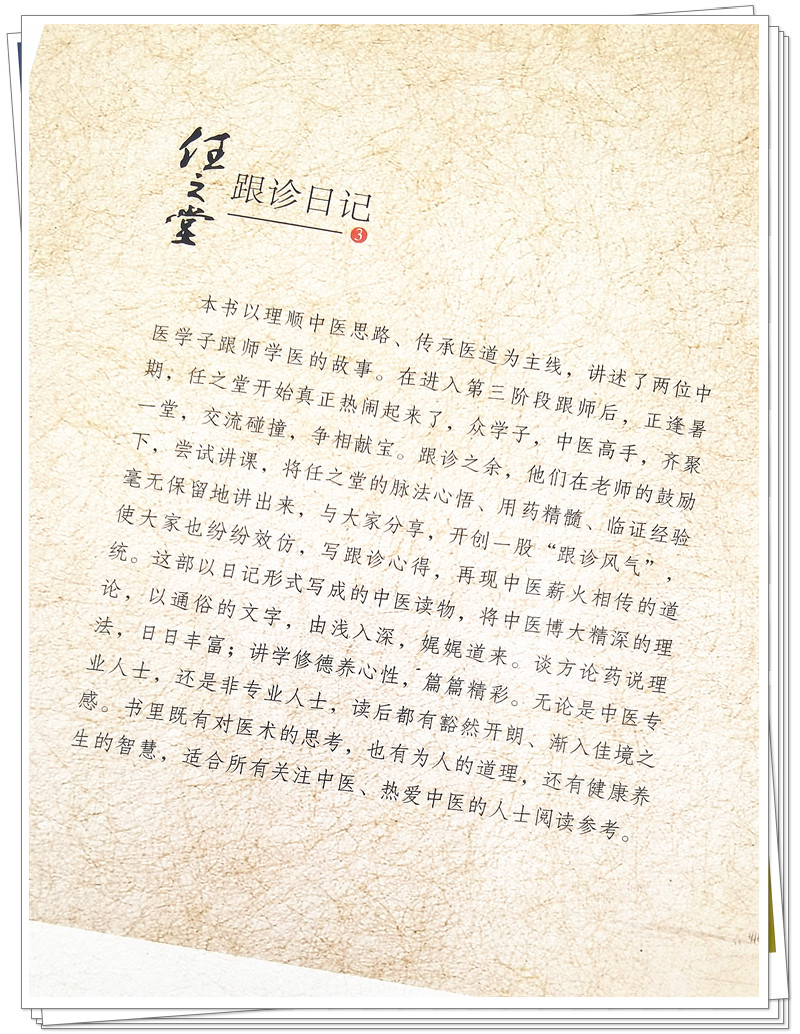 任之堂
跟诊日记
3
本书以理顺中医思路、传承医道为主线，讲述了两位中
医学子跟师学医的故事。在进入第三阶段跟师后，正逢暑
期，任之堂开始真正热闹起来了，众学子，中医高手，齐聚
一堂，交流碰撞，争相献宝。跟诊之余，他们在老师的鼓励
下，尝试讲课，将任之堂的脉法心悟、用药精髓、临证经验
毫无保留地讲出来，与大家分享，开创一股“跟诊风气”，
使大家也纷纷效仿，写跟诊心得，再现中医薪火相传的道
统。这部以日记形式写成的中医读物，将中医博大精深的理
论，以通俗的文字，由浅入深，娓娓道来。谈方论药说理
法，日日丰富；讲学修德养心性，篇篇精彩。无论是中医专
业人士，还是非专业人士，读后都有豁然开朗、渐入佳境之
感。书里既有对医术的思考，也有为人的道理，还有健康养
生的智慧，适合所有关注中医、热爱中医的人士阅读参考。